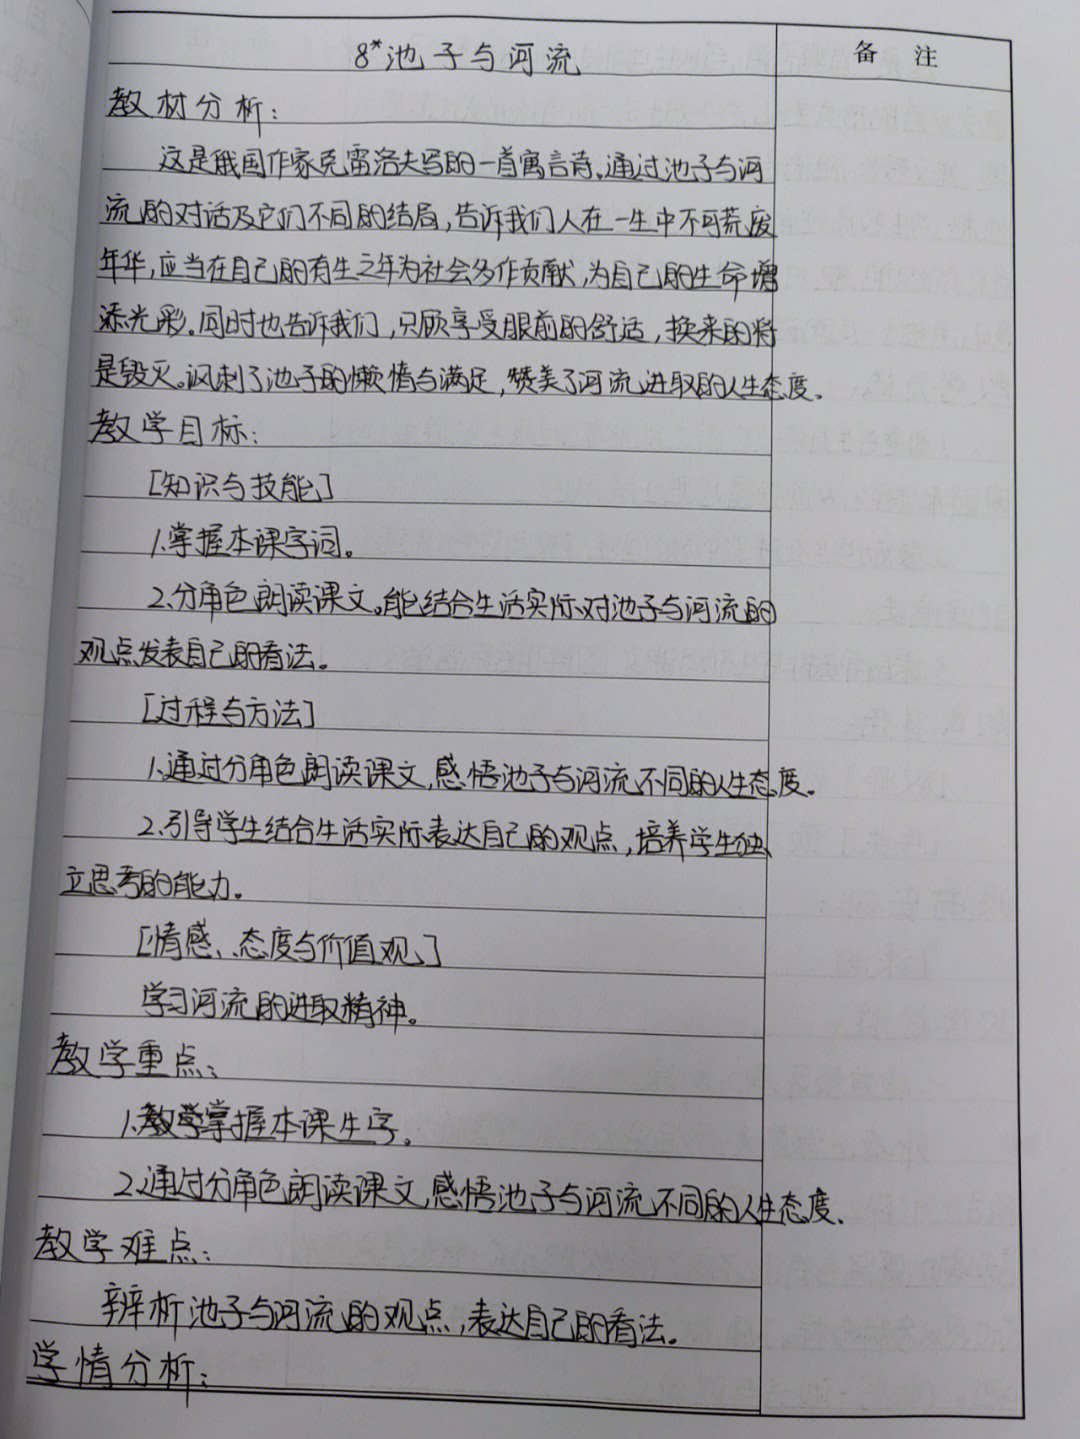 8*池子与河流
备 注
教材分析：
这是俄国作家克雷洛夫写的一首寓言诗。通过池子与河
流的对话及它们不同的结局，告诉我们人在一生中不可荒废
年华，应当在自己的有生之年为社会多作贡献，为自己的生命增
添光彩。同时也告诉我们，只顾享受眼前的舒适，换来的将
是毁灭。讽刺了池子的懒惰与满足，赞美了河流进取的人生态度。
教学目标：
[知识与技能]
1.掌握本课字词。
2.分角色朗读课文。能结合生活实际对池子与河流的
观点发表自己的看法。
[过程与方法]
1.通过分角色朗读课文，感悟池子与河流不同的人生态度。
2.引导学生结合生活实际表达自己的观点，培养学生独
立思考的能力。
[情感、态度与价值观]
学习河流的进取精神。
教学重点：
1.教学掌握本课生字。
2.通过分角色朗读课文，感悟池子与河流不同的人生态度。
教学难点：
辨析池子与河流的观点，表达自己的看法。
学情分析：